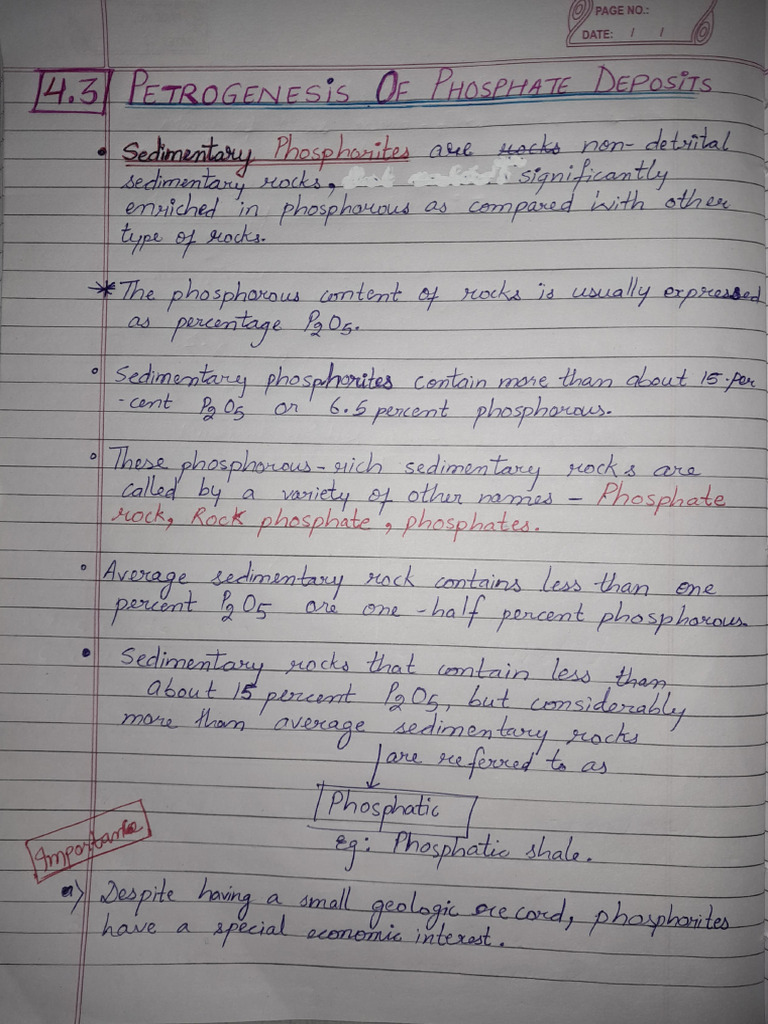 PAGE NO.:
DATE: / /
4.3 PETROGENESIS OF PHOSPHATE DEPOSITS
• Sedimentary Phosphorites are rocks non-detrital
sedimentary rocks, significantly
enriched in phosphorous as compared with other
type of rocks.
* The phosphorous content of rocks is usually expressed
as percentage P2O5.
• Sedimentary phosphorites contain more than about 15 per
-cent P2O5 or 6.5 percent phosphorous.
• These phosphorous-rich sedimentary rocks are
called by a variety of other names - Phosphate
rock, Rock phosphate, phosphates.
• Average sedimentary rock contains less than one
percent P2O5 are one-half percent phosphorous.
• Sedimentary rocks that contain less than
about 15 percent P2O5, but considerably
more than average sedimentary rocks
are referred to as
Phosphatic
Eg: Phosphatic shale.
Importance
a) Despite having a small geologic record, phosphorites
have a special economic interest.